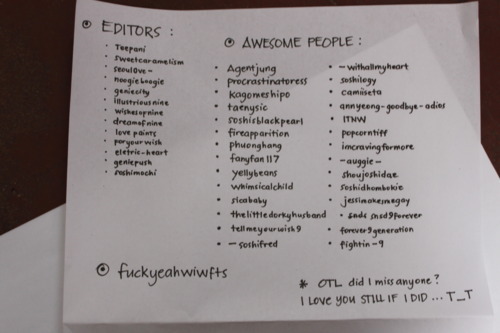 EDITORS :
• Teepani
• sweetcaramelism
• seoulove-
• noogieboogie
• geniecity
• illustriousnine
• wishesofnine
• dreamofnine
• love paints
• foryourwish
• eletric-heart
• geniepush
• soshimochi
AWESOME PEOPLE :
• Agentjung
• procrastinatoress
• kagomeshipo
• taenysic
• soshisblackpearl
• fireapparition
• phuonghang
• fanyfan117
• yellybeans
• whimsicalchild
• sicababy
• thelittledorkyhusband
• tellmeyourwish9
• -soshifred
• -withallmyheart
• soshilogy
• camiiseta
• annyeong-goodbye-adios
• ITNW
• popcorntiff
• imcravingformore
• -auggie-
• shoujoshidae
• soshidkombokie
• jessimakesmegay
• snsd9forever
• forever9generation
• fightin-9
fuckyeahwiwfts
* OTL did I miss anyone?
I LOVE YOU STILL IF I DID ... T_T